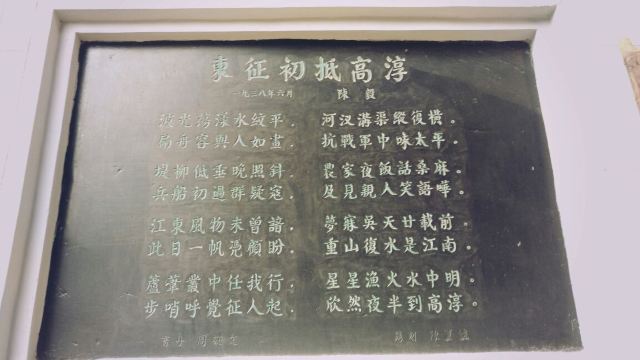 東征初抵高淳
一九三八年六月 陳毅
波光蕩漾水紋平，河汊溝渠縱復橫。
扁舟容與人如畫，抗戰軍中味太平。
堤柳低垂晚照斜，農家夜飯話桑麻。
兵船初過群疑寇，及見親人笑語嘩。
江東風物未曾諳，夢寐吳天廿載前。
此日一帆憑顧盼，重山復水是江南。
蘆葦叢中任我行，星星漁火水中明。
步哨呼覺征人起，欣然夜半到高淳。